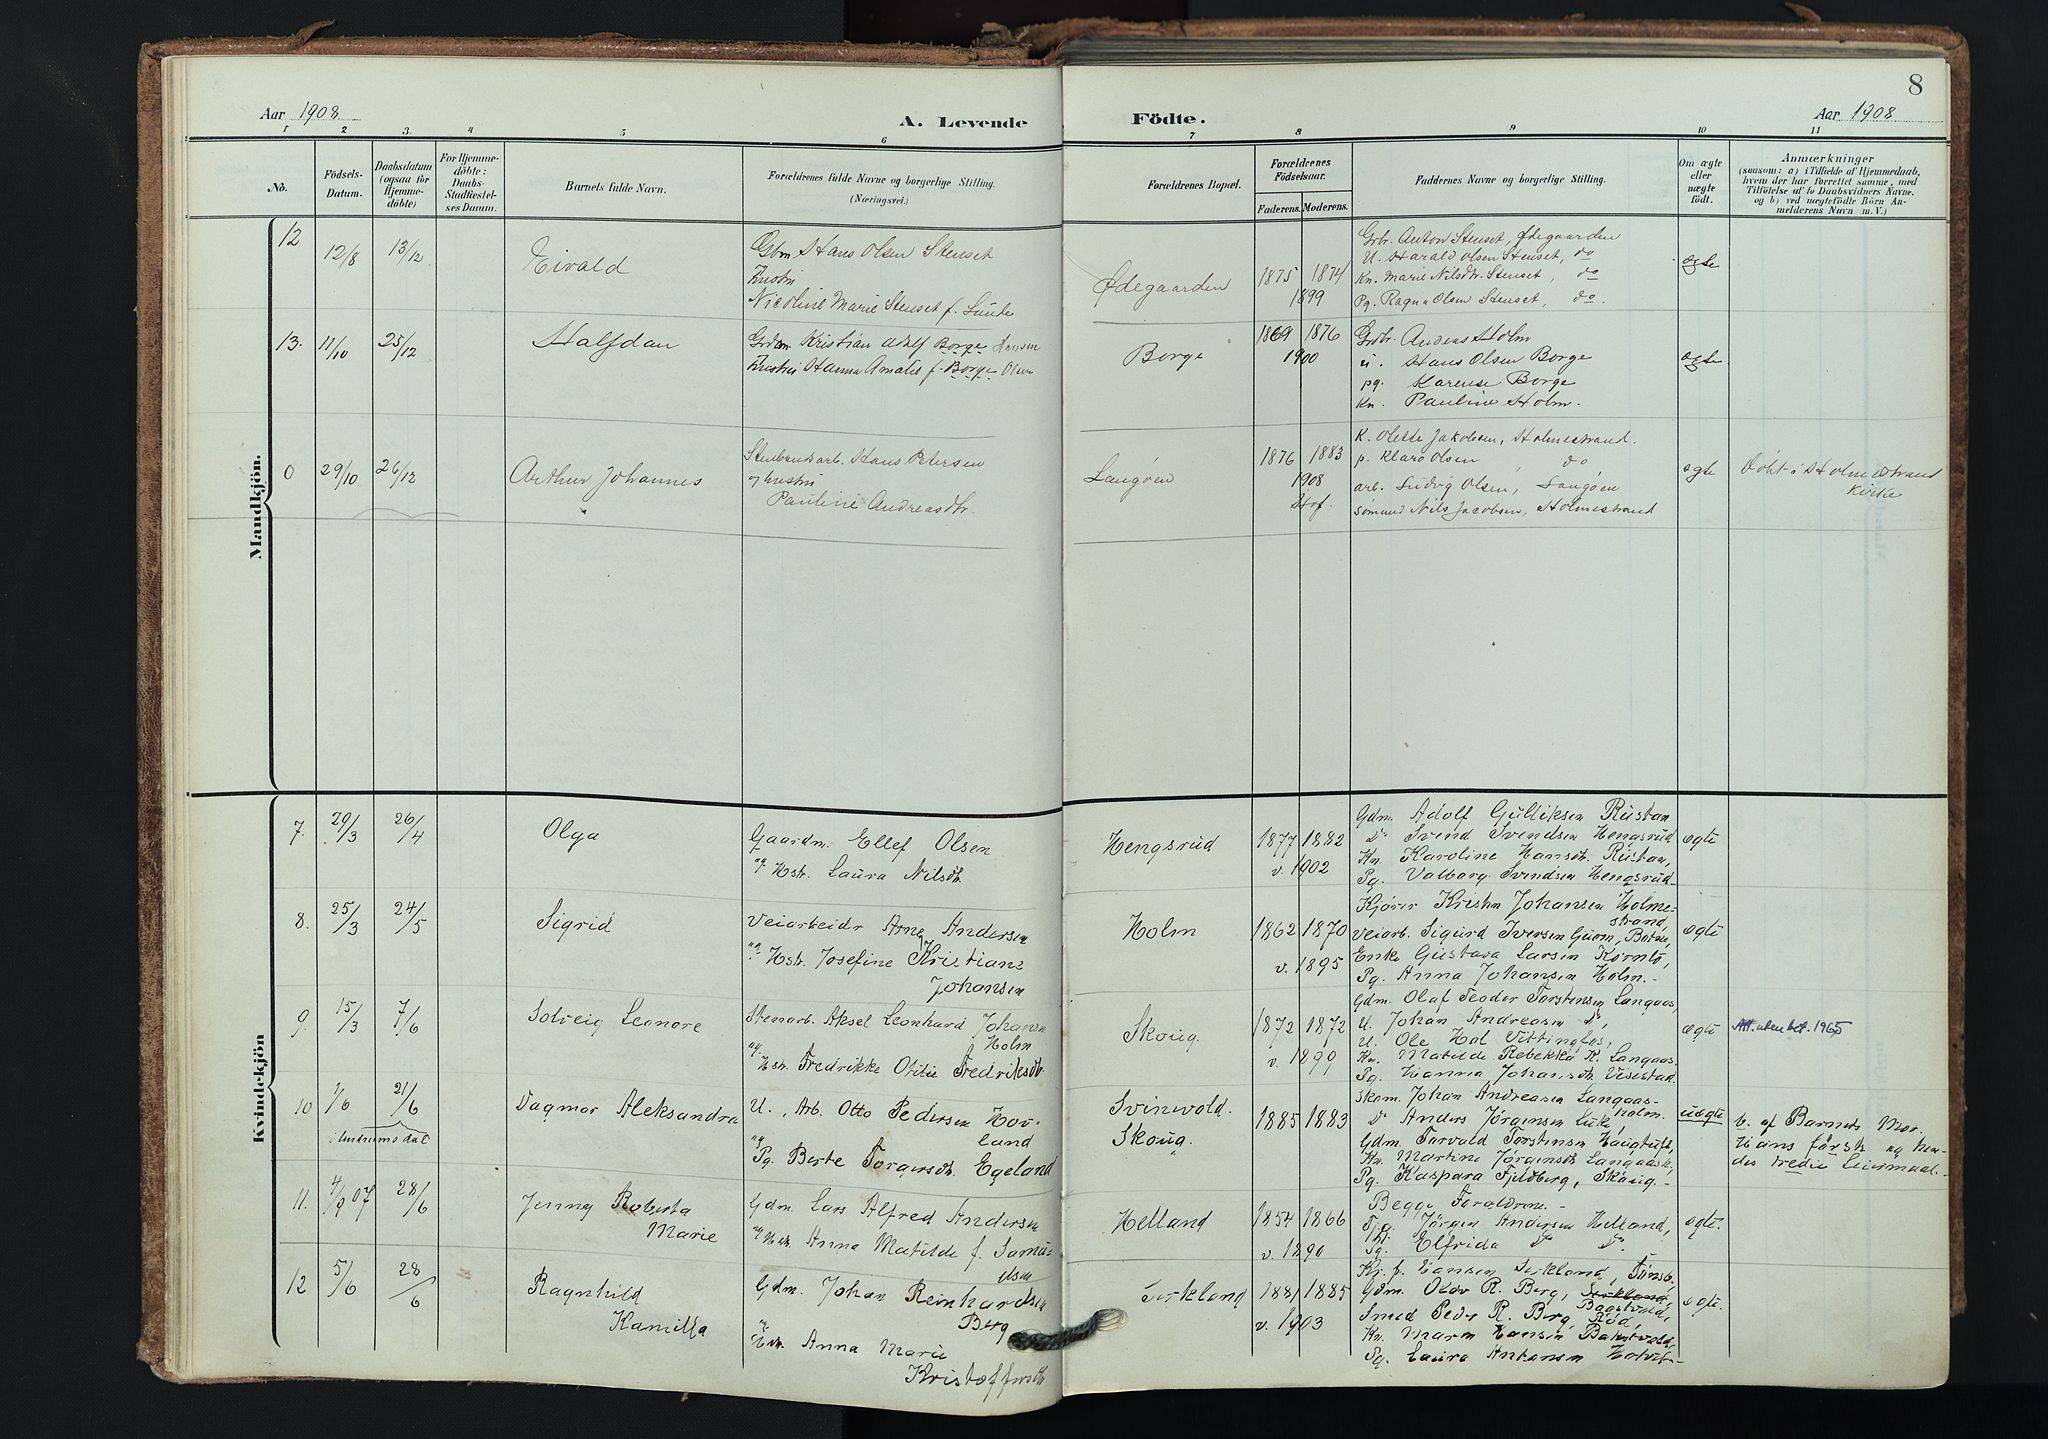 8
Aar 1908
A. Levende
Födte.
Aar 1908
1 2 3. 4 5 6 7 8 9 10 11
No.
Födsels-
Datum.
Daabsdatum
(ogsaa för
Hjemme-
döbte)
For Hjemme-
döbte:
Daabs-
Stadfæstel-
ses Datum.
Barnets fulde Navn.
Forældrenes fulde Navne og borgerlige Stilling.
(Næringsvei.)
Forældrenes Bopæl.
Forældrenes
Födselsaar.
Faderens. Moderens.
Faddernes Navne og borgerlige Stilling.
Om ægte
eller
uægte
födt.
Anmærkninger
(saasom: a) i Tilfælde af Hjemmedaab,
hvem der har forrettet samme, med
Tilföielse af to Daabsvidners Navne.
og b) ved uægtefödte Börn An-
melderens Navn m. V.)
Mandkjön.
12
12/8 13/12
Eivald
Gbm Hans Olsen Stenset
Hustru
Nicoline Marie Stenset f. Lunde
Ødegaarden
1875 1874
1899
Grbr. Anton Stenset, Ødegaarden
U. Harald Olsen Stenset, do
Kn. Marie Nilsdtr. Stenset, do
Pg. Ragna Olsen Stenset, do.
ægte
13. 11/10 25/12
Halfdan
Gdm Kristian Adolf Borge Hansen
Hustru Hanna Amalie f. Borge Olsen
Borge
1869 1876
1900
Grbr. Anders Holm
u. Hans Olsen Borge
pg. Karense Borge
Kn. Pauline Holm.
ægte
0 29/10 26/12
Arthur Johannes
Stenbrudsarb. Hans Petersen
og hustru
Pauline Andreasdtr.
Langøen
1876 1883
1908
Hof.
K. Olette Jakobsen, Holmestrand.
p. Klara Olsen do
arb. Ludvig Olsen, Langøen
sømand Nils Jacobsen, Holmestrand
ægte
Døbt i Holmestrand
Kirke
Kvindekjön
7. 29/3 26/4
Olga
Gaardm. Ellef Olsen
og Hstr. Laura Nilsdtr.
Hengsrud
1877 1882
v. 1902
Gdm. Adolf Gulliksen Rustan
Do Svend Svendsen Hengsrud
Kn. Karoline Hansdtr. Rustan,
Pg. Valborg Svendsen Hengsrud.
ægte
8. 25/3 24/5
Sigrid
Veiarbeidr Arne Andersen
og Hstr. Josefine Kristiane
Johansen
Holm
1862 1870
v. 1895
Kjører Kristin Johansen Holme-
strand,
Veiarb. Sigurd Iversen Gurm, Botne,
Enke Gustava Larsen Kornto,
Pg. Anna Johansen Holm.
ægte
9. 15/3 7/6
Solveig Leonore
Stenarb. Aksel Leonhard Johansen
Holm
og
Hstr. Fredrikke Otilie Fredriksdtr.
Skoug.
1872 1872
v. 1890
Gdm. Olaf Teodor Torstensen Langaas,
U. Johan Andreasen do,
U. Ole Hol Vittingfos,
Kn. Matilde Rebekka K. Langaas,
Pg. Hanna Johansdtr. Visestad.
ægte
Att. uten bet. 1965
10 1/6 21/6
i Hustrums dal
Dagmar Aleksandra
U., Arb. Otto Pedersen Hov-
land
og
Pg. Berte Torgersdtr. Egeland
Svinevold.
Skoug.
1885 1883
Skom. Johan Andreasen Langaas-
holm.
Do Anders Jørgensen Luke,
Gdm. Torvald Torstensen Haugtuft,
Kn. Martine Jørgensdtr. Langaask.
Pg. Kaspara Fjeldberg, Skoug.
uægte
v. af Barnets Mor.
Hans første og hen-
des tredie Leiermaal.
11. 4/9 07 28/6
Jenny Roberta
Marie
Gdm. Lars Alfred Andersen
og Hstr. Anna Matilde f. Samu-
elsen
Helland
1854 1866
v. 1890
Begge Forældrene.
Tjg. Jørgen Andersen Helland,
Pg. Elfrida do do.
ægte.
12 5/6 28/6
Ragnhild
Kamilla
Gdm. Johan Reinhardsen
Berg
og
Hstr. Anna Marie
Kristoffersdtr.
Serkland
1881 1885
v. 1903
Kj. f. Hansen Serkland, Tønsb.
Gdm. Olav R. Berg, Serkland,
Bagstvold,
Smed Peder R. Berg, Rød,
Kn. Maren Hansen Bakstvold,
Pg. Laura Antonsen
ægte.